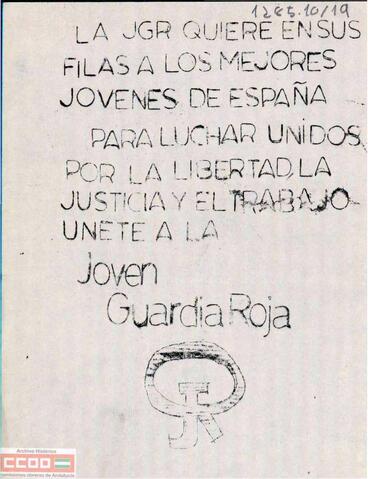 1285.10/19
LA JGR QUIERE EN SUS
FILAS A LOS MEJORES
JOVENES DE ESPAÑA
PARA LUCHAR UNIDOS
POR LA LIBERTAD, LA
JUSTICIA Y EL TRABAJO
UNETE A LA
Joven
Guardia Roja
Archivo Histórico
CCOO
comisiones obreras de Andalucía